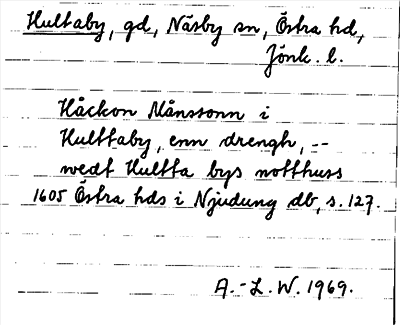 Hultaby, gd, Näsby sn, Östra hd,
Jönk. l.
Håckon Månssonn i
Hulttaby, enn drengh, --
wedt Hultta bys notthuss
1605 Östra hds i Njudung db, s. 127.
A.-L.W. 1969.